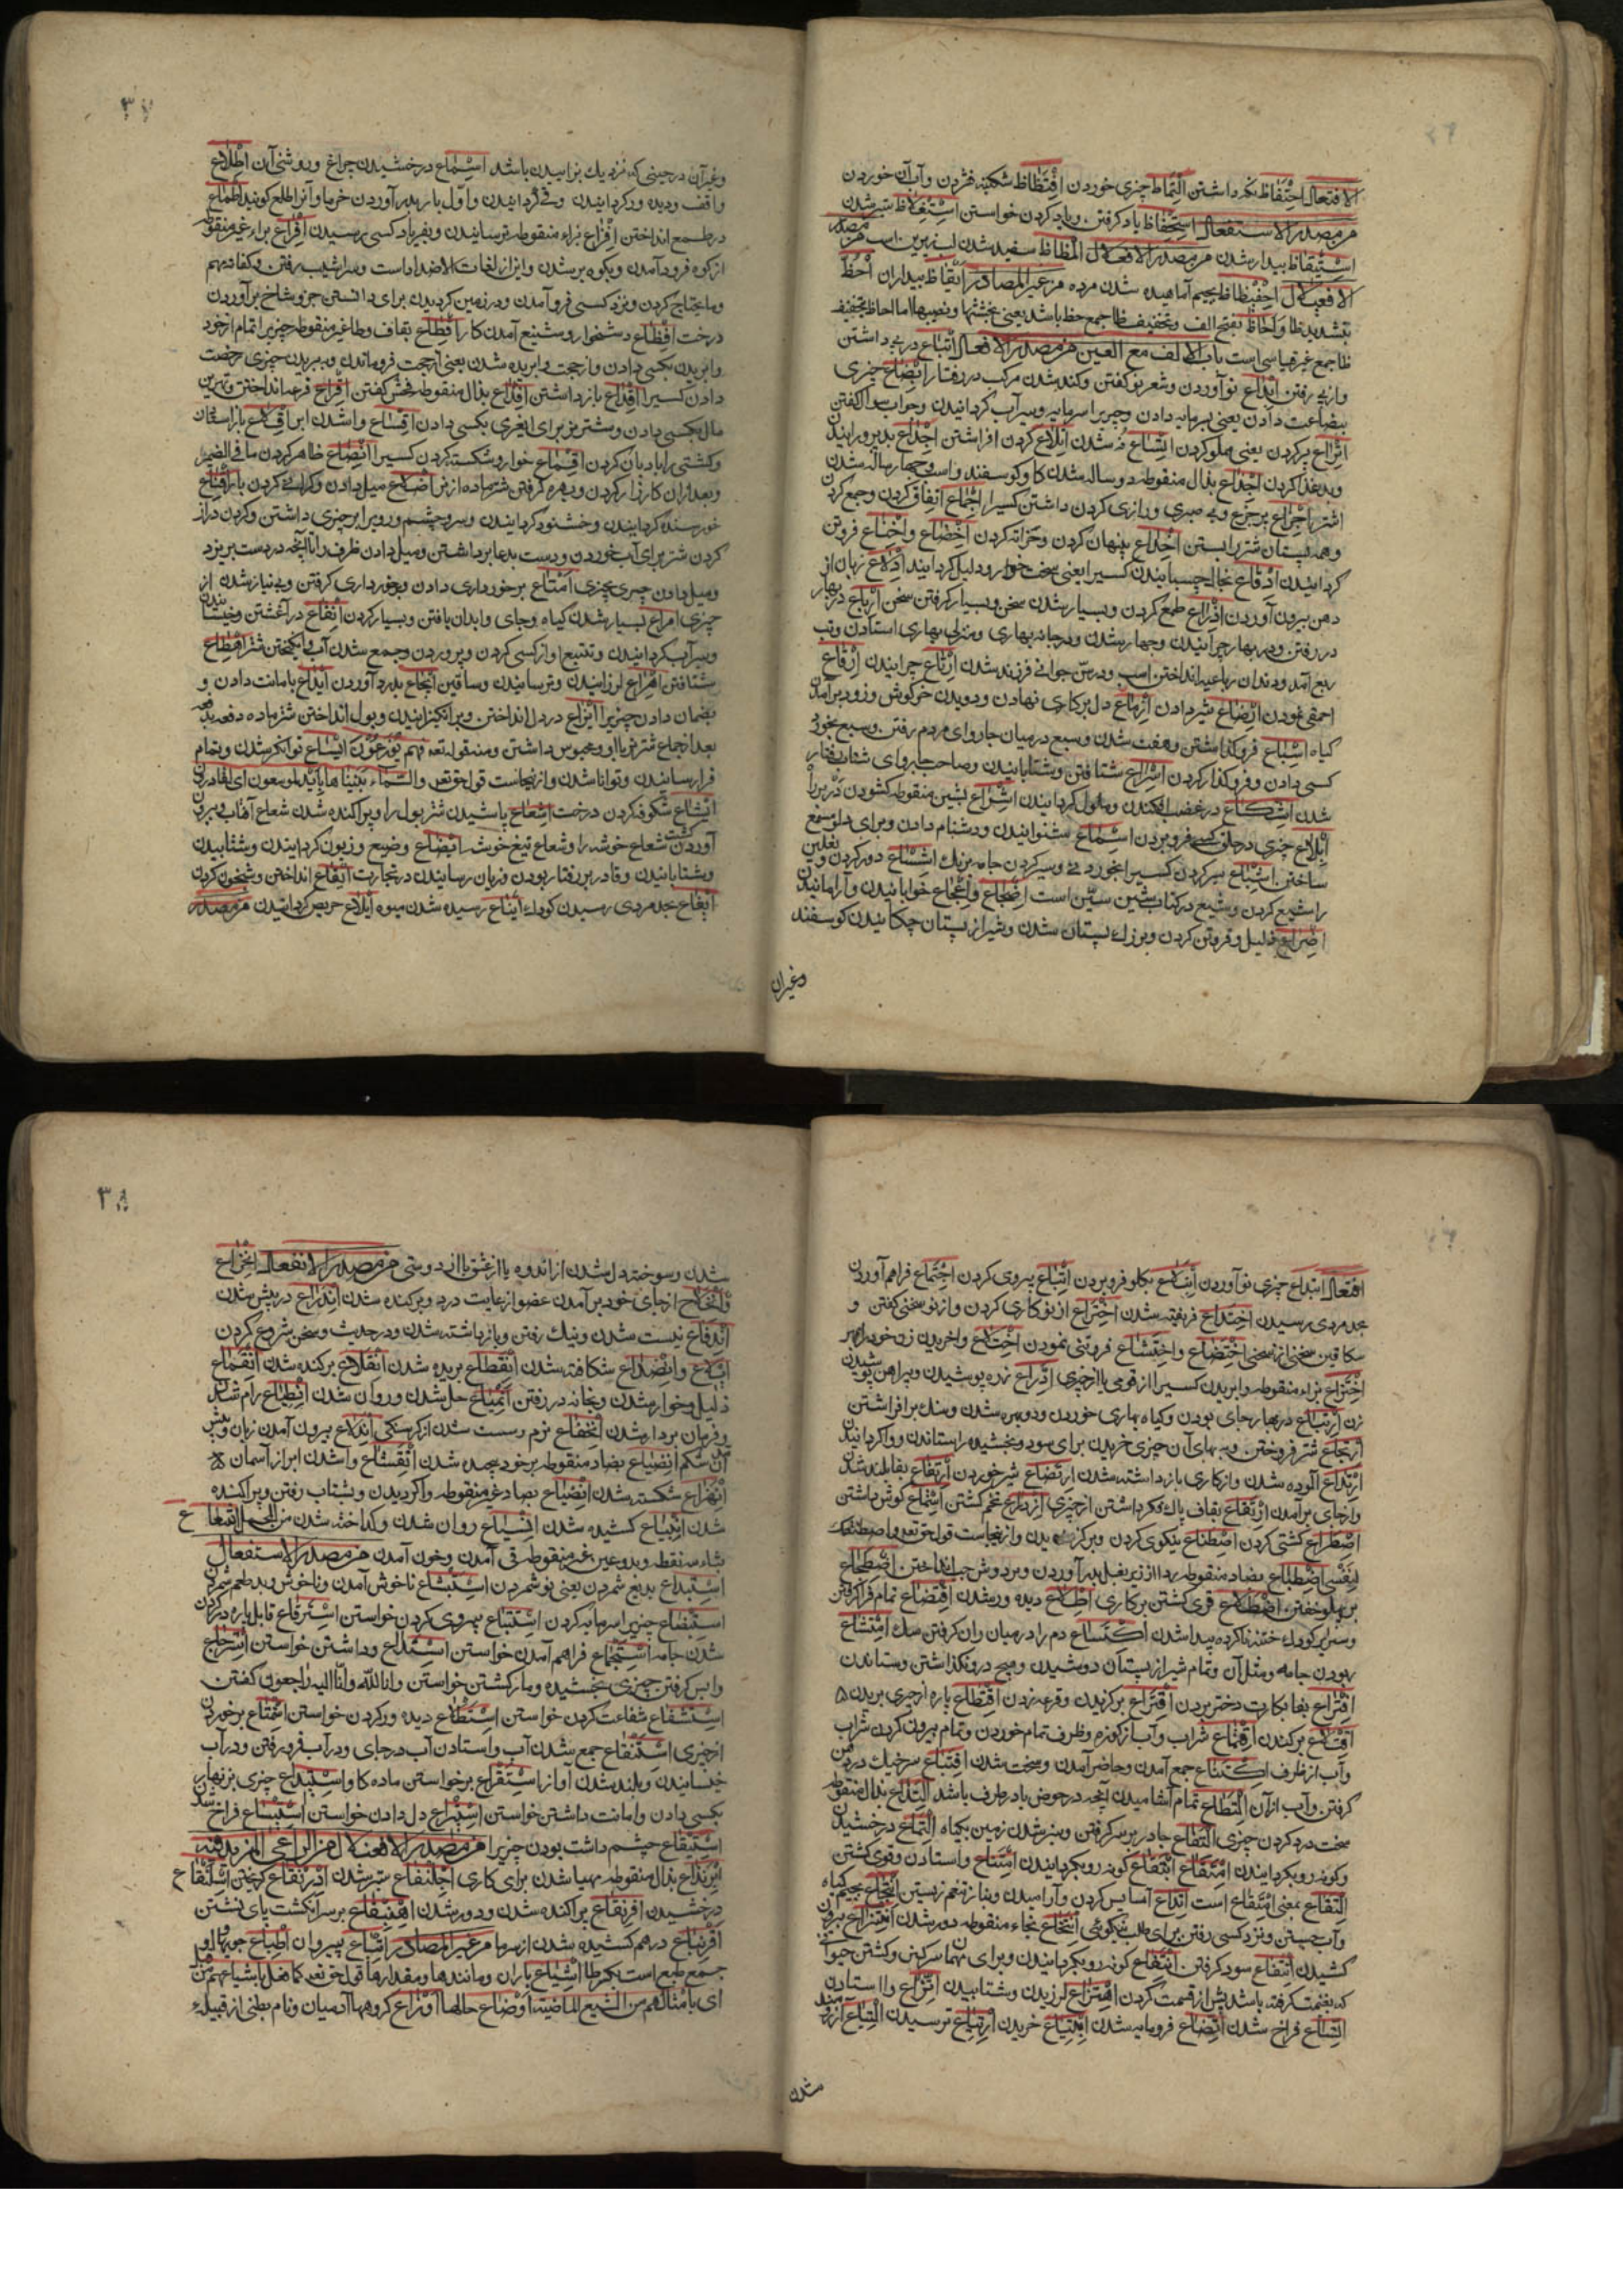 الافتعال احتفاظ نگه داشتن التماظ چیزی خوردن افتظاظ شکنبه فشردن وآب آن خوردن
من مصدر الاستفعال استحفاظ یاد گرفتن ویاد کردن خواستن استغلاظ سبتر شدن
استیقاظ بیدار شدن من مصدر الافعلال المظاظ سفید شدن لب زیرین اسب من مصدر
الافعیلال اجفیظاظ بجیم آماهیده شدن مرده من غیر المصادر ایقاظ بیداران احظ
بتشدید ظا واحاظ بفتح الف وتخفیف ظا جمع حظ باشد یعنی بخشها ونصیبها اما احاظ بتخفیف
ظا جمع غیر قیاسی است باب الالف مع العین من مصدر الافعال اتباع در پی داشتن
واز پی رفتن ابداع نو آوردن وشعر نو گفتن وکند شدن مرکب در رفتار ابضاع چیزی
ببضاعت دادن یعنی بسرمایه دادن وچیزیرا سرمایه وسیرآب گردانیدن وجواب سوال گفتن
اتراع پر کردن یعنی مملو کردن اتساع نه شدن اتلاع گردن افراشتن اجداع بدپرورانیدن
وبدغذا کردن اجذاع بذال منقوطه دوساله شدن گاو وگوسفند واسب وچهارساله شدن
اشتر اجزاع بر جزع وبی صبری وزاری کردن داشتن کسیرا اجماع اتفاق کردن وجمع کرد
وهمه پستان شتر را بستن اخداع پنهان کردن وخزانه کردن اخضاع واخناع فروتن
گردانیدن ادقاع بخاک چسبانیدن کسیرا یعنی سخت خوار وذلیل گردانید ادلاع زبان از
دهن بیرون آوردن اذراع طمع کردن وبسیار شدن سخن وبسیار گرفتن سخن ارباع در بهار
در رفتن ودر بهار چرانیدن وچهار شدن ودر جایه بهاری ومنزلی بهاری استادن وتب
ربع آمد ودندان رباعیه انداختن اسب ودر سن جوانی فرزند شدن ارتاع چرانیدن ارقاع
احمقی نمودن ارضاع شیر دادن ازماع دل بر کاری نهادن ودویدن خرگوش وزود برآمدن
گیاه اسباع فرو گذاشتن وهفت شدن وسبع در میان چاروای مردم رفتن وسبع بخورد
کسی دادن وفرو گذار کردن اسراع شتافتن وشتابانیدن وصاحب چاروای شتاب رفتار
شدن اشکاع در غضب افکندن وملول گردانیدن اشراع بشین منقوطه گشودن در برا
ابلاع چیزی در حلق کسی فرو بردن اسماع شنوانیدن ودشنام دادن وبرای دلو مسمع
ساختن اشباع سیر کردن کسیرا بخوردنی وسیر کردن جامه برنگ اشساع دور کردن ونعلین
را شسع کردن وشسع در کتاب شین سین است اضجاع واهجاع خوابانیدن وآرامانیدن
اضراع ذلیل وفروتن کردن وبزرگ پستان شدن وشیر از پستان چکانیدن گوسفند
وغیر آن
۳۷
وغیر آن در حینی که نزدیک بزاییدن باشد استماع درخشیدن چراغ وروشنی آن اطلاع
واقف ودیده ور گردانیدن وقی گردانیدن واول بار بدر آوردن خرما وآنرا طلع گویند اطماع
در طمع انداختن افزاع بزاء منقوطه ترسانیدن وبفریاد کسی رسیدن افراع براء غیر منقوطه
از کوه فرود آمدن وبکوه بر شدن واین از لغات الاضداد است وسراشیب رفتن وکفاف مهم
وما یحتاج کردن ونزد کسی فرو آمدن ودر زمین گردیدن برای دانستن خبر وشاخ بر آوردن
درخت افظاع دشخوار وشنیع آمدن کار اقطاع بقاف وطا غیر منقوطه چیزیرا تمام از خود
وا بریدن بکسی دادن واز حجت وا بریده شدن یعنی از حجت فروماندن وببریدن چیزی رخصت
دادن کسیرا اقداع باز داشتن اقذاع بذال منقوطه فحش گفتن اقراع قرعه انداختن وبهترین
مال بکسی دادن وشتر نر برای ایغری بکسی دادن اقشاع وا شدن ابر اقلاع باز استادن
وکشتی را بادبان کردن اقماع خوار وشکسته کردن کسیرا انصاع ظاهر کردن ما فی الضمیر
خورسند گردانیدن وخشنود گردانیدن وسر وچشم وروی برابر چیزی داشتن وگردن دراز
کردن شتر برای آب خوردن ودست بدعا برداشتن ومیل دادن ظرف را تا آنچه در دست بریزد
ومیل دادن چیزی بچیزی امتاع برخورداری دادن وبرخورداری گرفتن وبی نیاز شدن از
چیزی امراع بسیار شدن گیاه وجای وابدان یافتن وبسیار کردن انقاع در آغشتن وخیسانیدن
وسیرآب گردانیدن وتتبع آواز کسی کردن وپروردن وجمع شدن آب
شتافتن اهزاع لرزانیدن وترسانیدن ایجاع بدرد آوردن ایداع بامانت دادن و
بضمان دادن چیزیرا ایزاع در دل انداختن وبر انگیزانیدن وبول انداختن شتر ماده دفعه بدفعه
فرا رسانیدن وتوانا شدن وازینجاست قول حق تعم والسماء بنیناها بایید وانا لموسعون ای لقادرون
اینشاع شکوفه کردن درخت اشعاع پاشیدن شتر بول را وپراکنده شدن شعاع آفتاب وبیرون
آوردن کشت شعاع خوشه را وشعاع تیغ خوشه ایضاع وضیع وزبون گردانیدن وشتابیدن
وشتابانیدن وقادر بر رفتار بودن وزیان رسانیدن در تجارت ایقاع انداختن وشبخون کردن
ایفاع بحد مردی رسیدن کودک ایناع رسیده شدن میوه ایلاع حریص گردانیدن من مصدر
افتعال ابتداع چیزی نو آوردن ابتلاع بگلو فرو بردن اتباع پیروی کردن اجتماع فراهم آوردن
بحد مردی رسیدن اختداع فریفته شدن اختراع از نو کاری کردن واز نو سخنی گفتن و
شکافتن سخنی از سخنی اختضاع واختشاع فروتنی نمودن اختلاع واخریدن زن خود را بمهر
اختزاع بزاء منقوطه وا بریدن کسیرا از قومی یا از چیزی ادراع زره پوشیدن وپیراهن پوشیدن
زن ارتباع در بهار جای بودن وگیاه بهاری خوردن ودوپس شدن وسنگ برافراشتن
ارتجاع شتر فروختن وببهای آن چیزی خریدن برای سود وبخشیده را ستاندن ووا گردانیدن
ارتداع آلوده شدن واز کاری باز داشته شدن ارتضاع شیر خوردن ارتفاع بفا بلند شدن
واز جای بر آمدن ارتقاع بقاف پاک نگه داشتن از چیزی ازدراع تخم کشتن استماع گوش داشتن
اصطراع کشتی کردن اصطناع نیکوی کردن وبرگزیدن وازینجاست قول حق تعم واصطنعتک
لنفسی اضطباع بضاد منقوطه ردا از زیر بغل بدر آوردن وبر دوش چپ انداختن اضطجاع
بر پهلو خفتن اضطلاع قوی گشتن بر کاری اطلاع دیده ور شدن اقتضاع تمام فرا گرفتن
وسر ایر کودک ختنه ناکرده پیدا شدن اکتساع دم را در میان ران گرفتن سگ امتشاع
ربودن جامه ومثل آن وتمام شیر از پستان دوشیدن وهیچ درو نگذاشتن وستاندن
افتراع بفا بکارت دختر بردن اقتراع برگزیدن وقرعه زدن اقتطاع پاره از چیزی بریدن
اقتلاع بر کندن اقتماع شراب وآب از کوزه وظرف تمام خوردن وتمام بیرون کردن شراب
وآب از ظرف اکتناع جمع آمدن وحاضر آمدن وسخت شدن اقتباع سر خیک در دهن
گرفتن وآب از آن التطاع تمام آشامیدن آنچه در حوض یا در ظرف باشد التذاع بذال منقوطه
سخت درد کردن چیزی التفاع چادر بر سر گرفتن وسبز شدن زمین بگیاه التماع درخشیدن
وگونه رو بگردانیدن امتقاع ابتقاع گونه رو بگردانیدن امتناع وا استادن وقوی گشتن
التقاع بمعنی امتقاع است اتداع آسایش کردن وآرامیدن وبناز وتنعم زیستن انتجاع بجیم گیاه
وآب جستن ونزد کسی رفتن برای طلب نیکوئی انتخاع بخاء منقوطه دور شدن انتزاع بیرون
کشیدن انتفاع سود گرفتن انتقاع گونه رو بگردانیدن وبرای مهمان سر کردن وکشتن حیوانی
که بغنیمت گرفته باشد پیش از قسمت کردن اهتزاع لرزیدن وشتابیدن اتزاع وا استادن
اتساع فراخ شدن اتضاع فرومایه شدن ابتیاع خریدن ارتیاع ترسیدن التیاع آرزومند
شدن
۳۸
شدن وسوخته دل شدن از اندوه یا از عشق یا از دوستی من مصدر الانفعال انخراع
وانخلاع از جای خود بر آمدن عضو از غایت درد وبر کنده شدن اندراع در پیش شدن
اندفاع نیست شدن ونیک رفتن وباز داشته شدن ودر حدیث وسخن شروع کردن
وانصداع شکافته شدن انقطاع بریده شدن انقلاع بر کنده شدن انقماع
ذلیل وخوار شدن وبخانه در رفتن انمیاع حل شدن وروان شدن انطباع رام شدن
وفرمان بردار شدن انخفاع نرم وسست شدن از گرسنگی اندلاع بیرون آمدن زبان وپیش
آمدن شکم انضیاع بضاد منقوطه بر خود پیچیده شدن انقشاع وا شدن ابر از آسمان
انهزاع شکسته شدن انصیاع بصاد غیر منقوطه وا گردیدن وبشتاب رفتن وپراکنده
شدن انبیاع کشیده شدن انسیاع روان شدن وگداخته شدن
بثاء سه نقطه وبدو عین غیر منقوطه قی آمدن وخون آمدن من مصدر الاستفعال
استبداع بدیع شمردن یعنی نو شمردن استبشاع ناخوش آمدن وناخوش وبدطعم شمردن
استبضاع چیزیرا سرمایه کردن استتباع پیروی کردن خواستن استرقاع قابل پاره در کردن
شدن جامه استجماع فراهم آمدن خواستن استیداع ودا داشتن خواستن استرجاع
واپس گرفتن چیزی بخشیده وباز گشتن خواستن وانا لله وانا الیه راجعون گفتن
استشفاع شفاعت کردن خواستن استطلاع دیده ور کردن خواستن استمتاع برخوردن
از چیزی استنقاع جمع شدن آب واستادن آب در جای ودر آب فرو رفتن ودر آب
خیسانیدن وبلند شدن آواز استقراع بر خواستن ماده گاو استیداع چیزی بزنهار
بکسی دادن وامانت داشتن خواستن استیزاع دل دادن خواستن استیساع فراخ شدن
استیقاع چشم داشت بودن چیزیرا من مصدر الافعنلال من الرباعی المزید فیه
ابرنذاع بذال منقوطه مهیا شدن برای کاری اجلنفاع سبتر شدن ادرنقاع گریختن اسلنقاع
درخشیدن افرنقاع پراکنده شدن ودور شدن اهبنقاع بر سر انگشت پای نشستن
اقرنباع در هم کشیده شدن از سرما من غیر المصادر اتباع پیروان اطباع جویها واو
جمع طبع است بکسر طا اشیاع یاران ومانندها ومقدارها قول حق تعم کما فعل باشیاعهم من قبل
ای بامثالهم من الشیع الماضیة اوضاع حالها اوزاع گروهها آدمیان ونام بطنی از قبیله